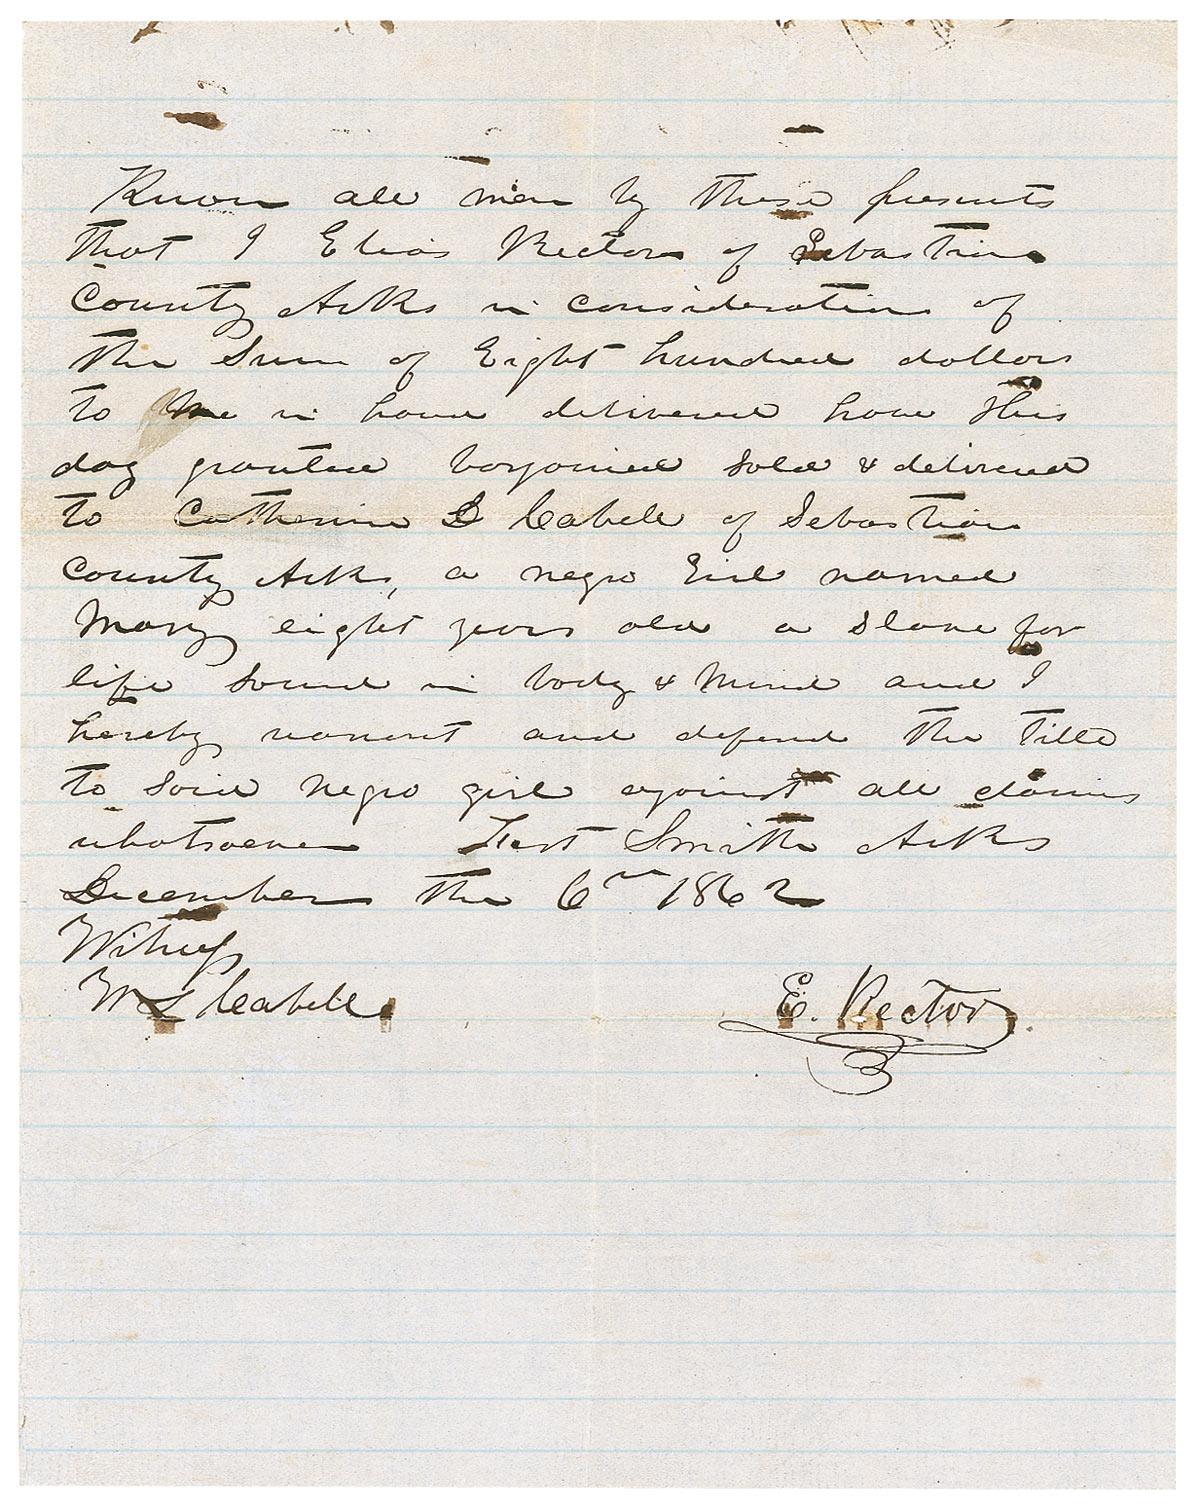 Know all men by these presents
that I Elias Rector of Sebastian
County Arks in consideration of
the Sum of Eight hundred dollars
to me in hand delivered have this
day granted bargained sold & delivered
to Catherine D Cabell of Sebastian
County Arks, a negro Girl named
Mary eight years old a slave for
life sound in body & mind and I
hereby warrant and defend the title
to said negro girl against all claims
whatsoever Fort Smith Arks
December the 6th 1862
Witness
W L Cabell
E. Rector